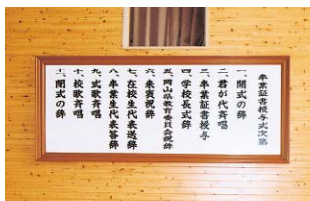 卒業証書授与式次第
一、開式の辞
二、君が代斉唱
三、卒業証書授与
四、学校長式辞
五、岡山県教育委員会祝辞
六、来賓祝辞
七、在校生代表送辞
八、卒業生代表答辞
九、式歌斉唱
十、校歌斉唱
十一、閉式の辞